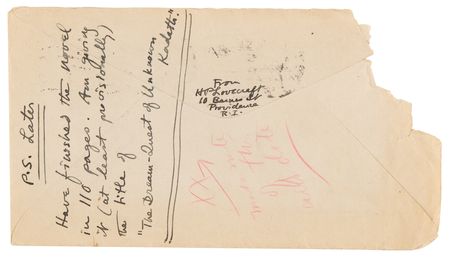 P.S. Later
Have finished the novel
in 110 pages. Am giving
it (at least provisionally)
the title of
"The Dream-Quest of Unknown
Kadath."
From
HPLovecraft
10 Barnes St
Providence
R.I.